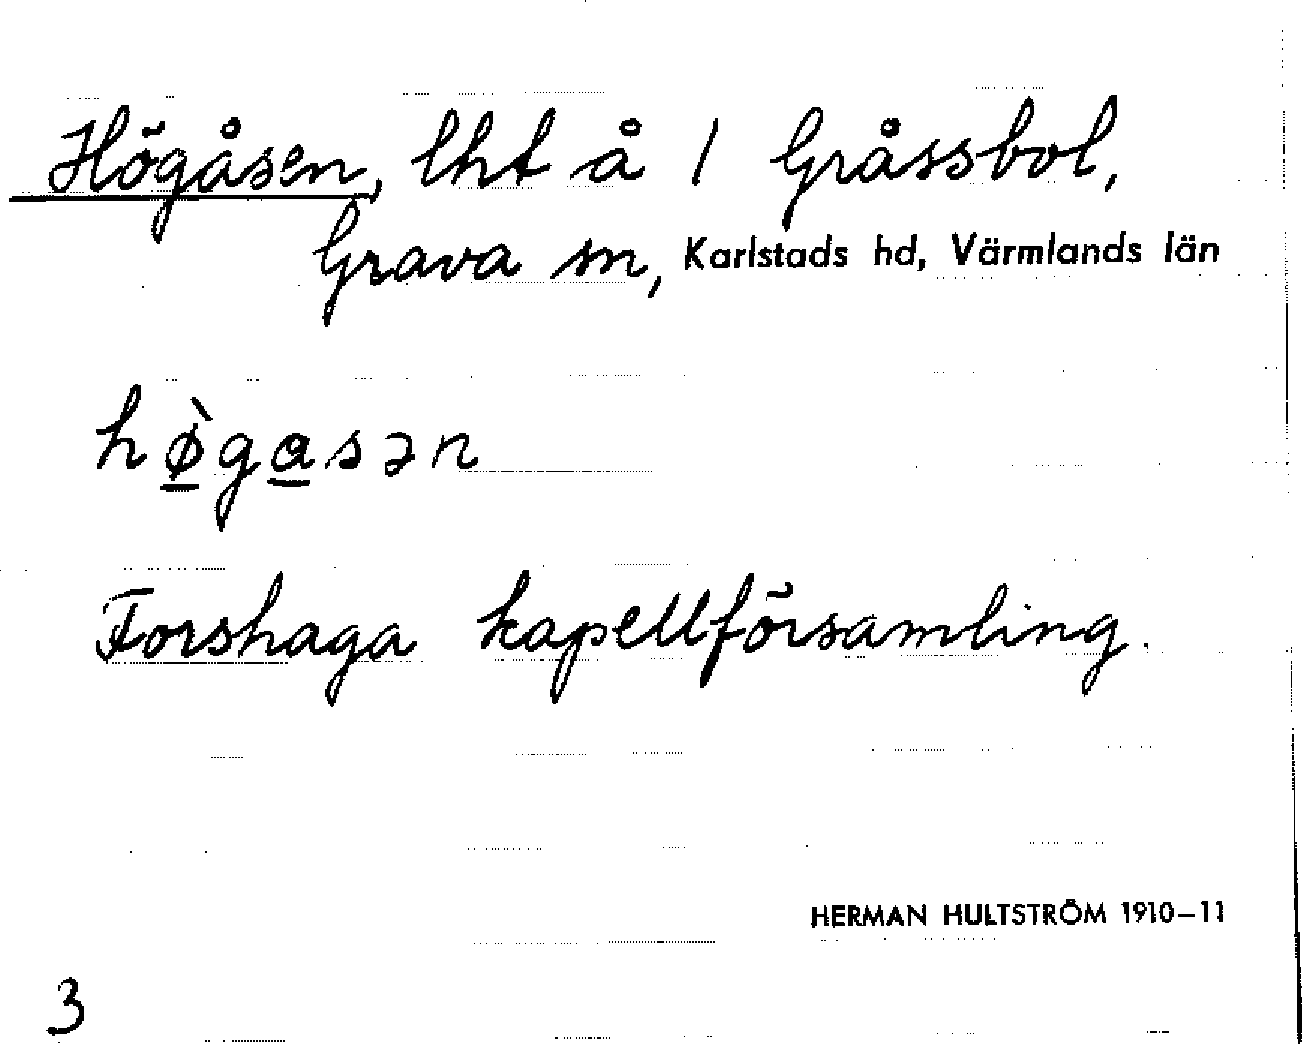 Högåsen, lht å 1 Gråssbol,
Grava sn, Karlstads hd, Värmlands län
hø̲̀ga̲sən
Forshaga kapellförsamling.
HERMAN HULTSTRÖM 1910–11
3